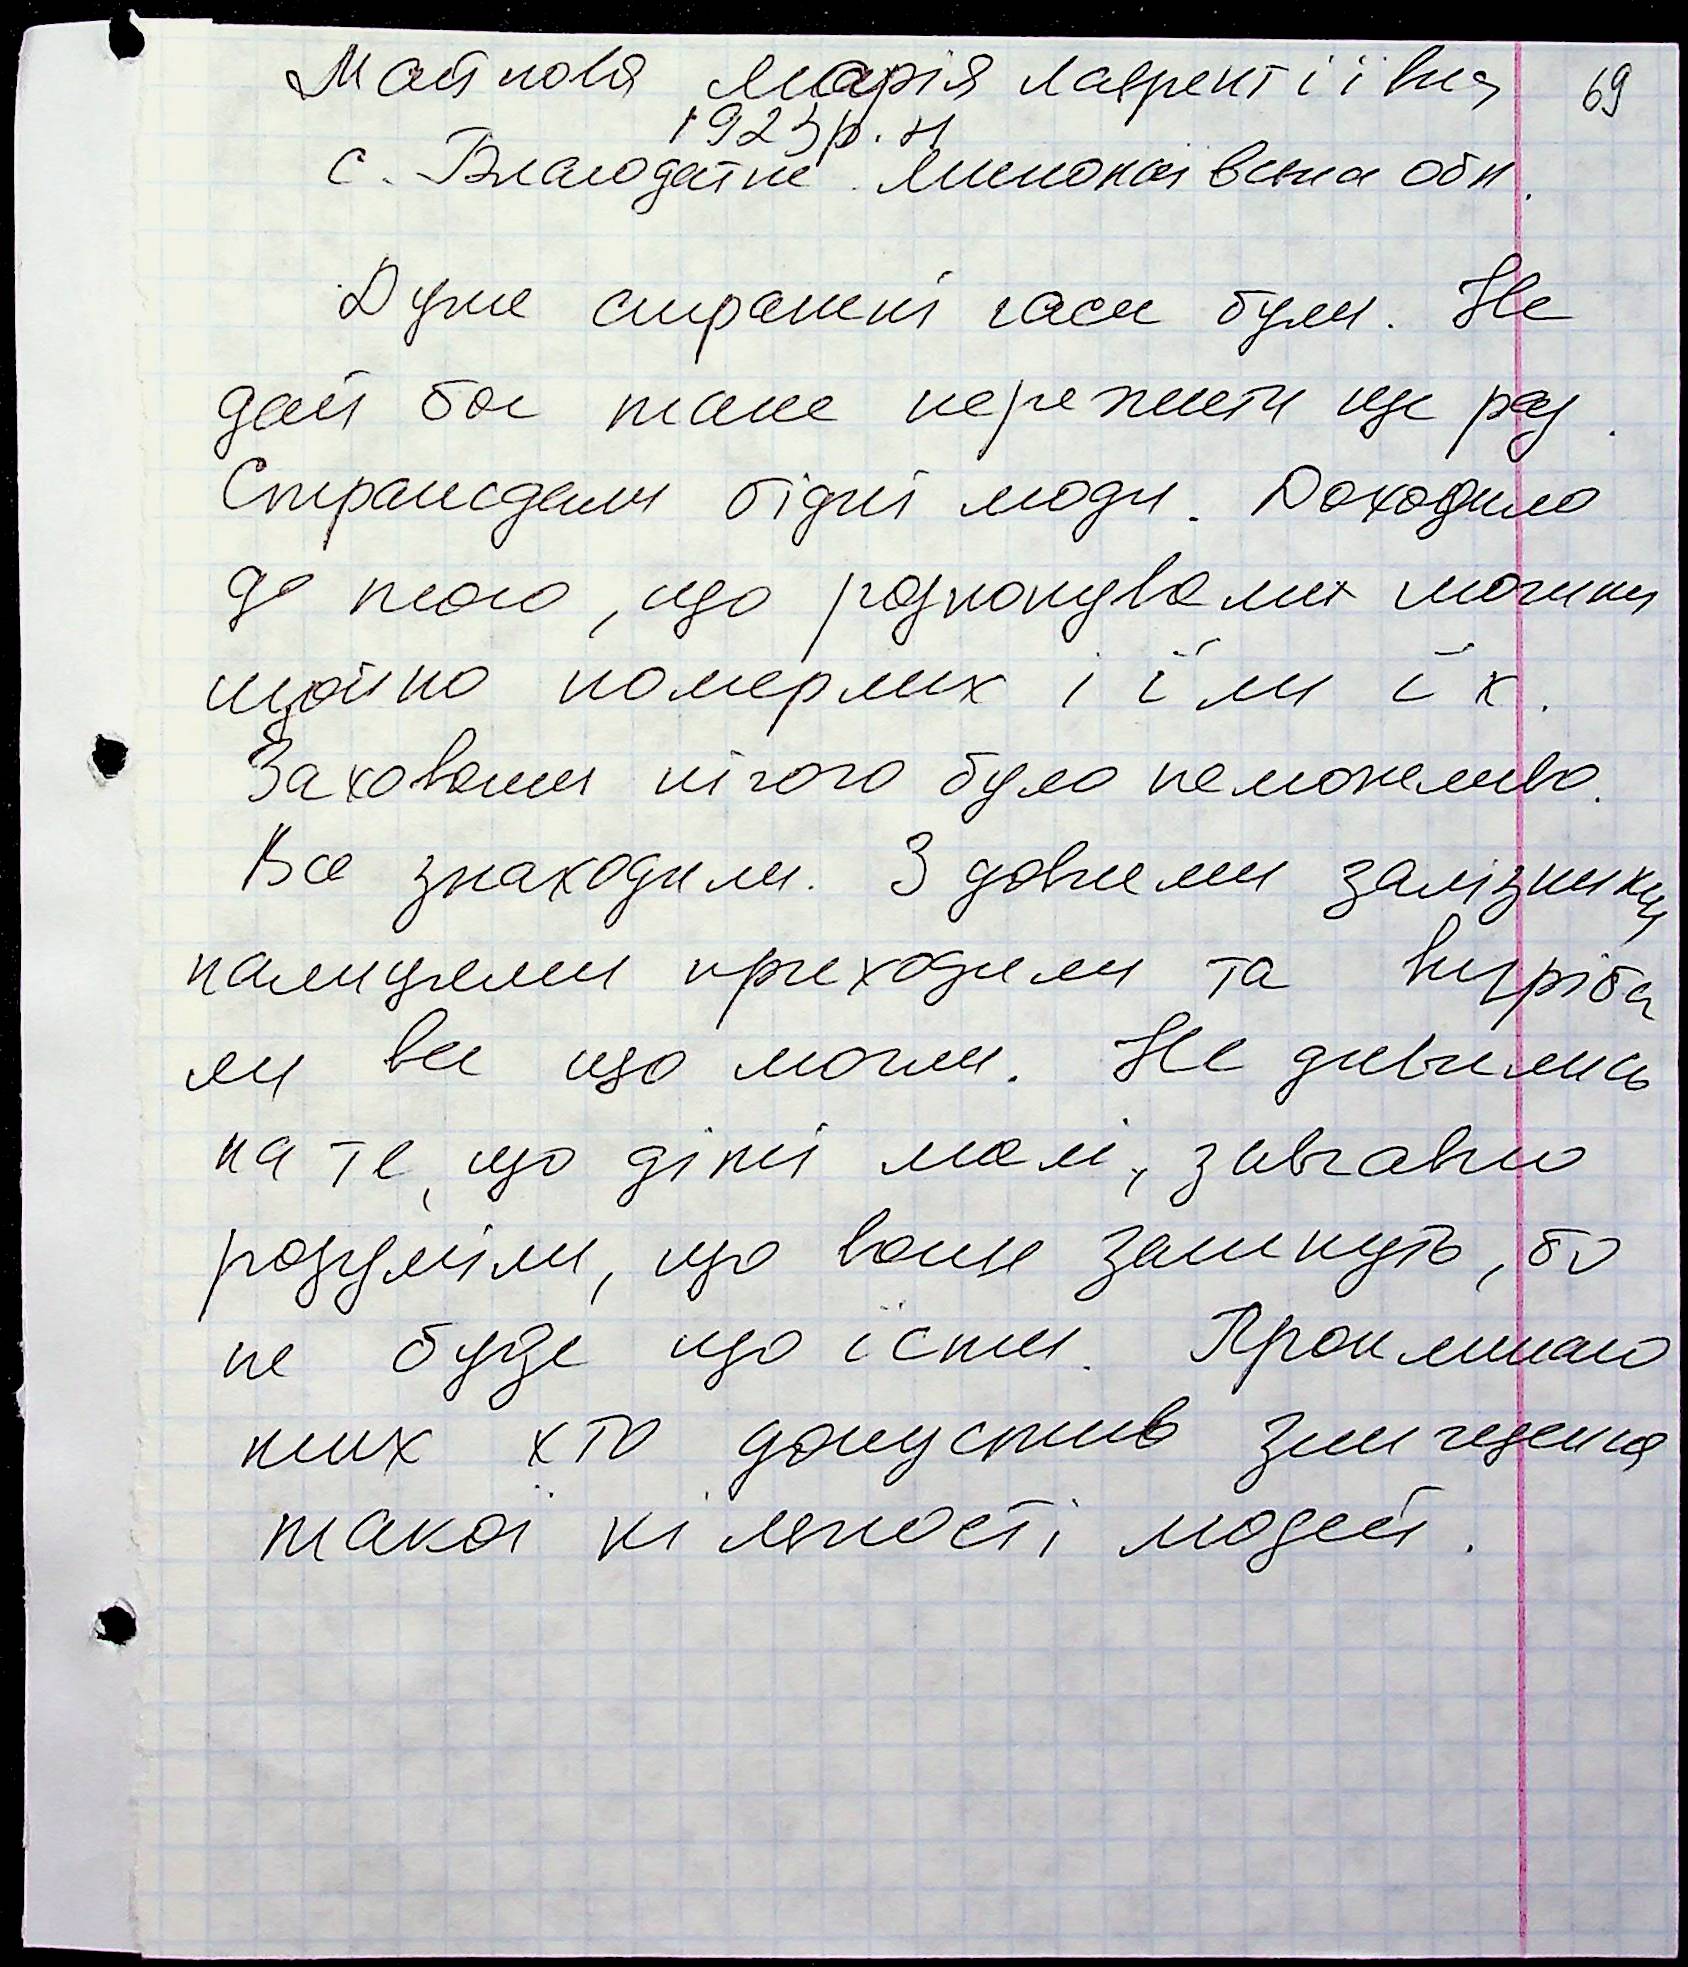 Майнова Марія Лаврентіївна 69
1923 р. н
с. Благодатне Миколаївська обл.
Дуже страшні часи були. Не
дай бог таке пережити ще раз.
Страждали бідні люди. Доходило
до того, що розкопували могили
щойно померлих і їли їх.
Заховати нічого було неможливо.
Все знаходили. З довгими залізними
палицями приходили та вигріба
ли все що могли. Не дивились
на те, що діти малі, завчавно
розуміли, що вони загинуть, бо
не буде що їсти. Проклинаю
тих хто допустив знищення
такої кількості людей.